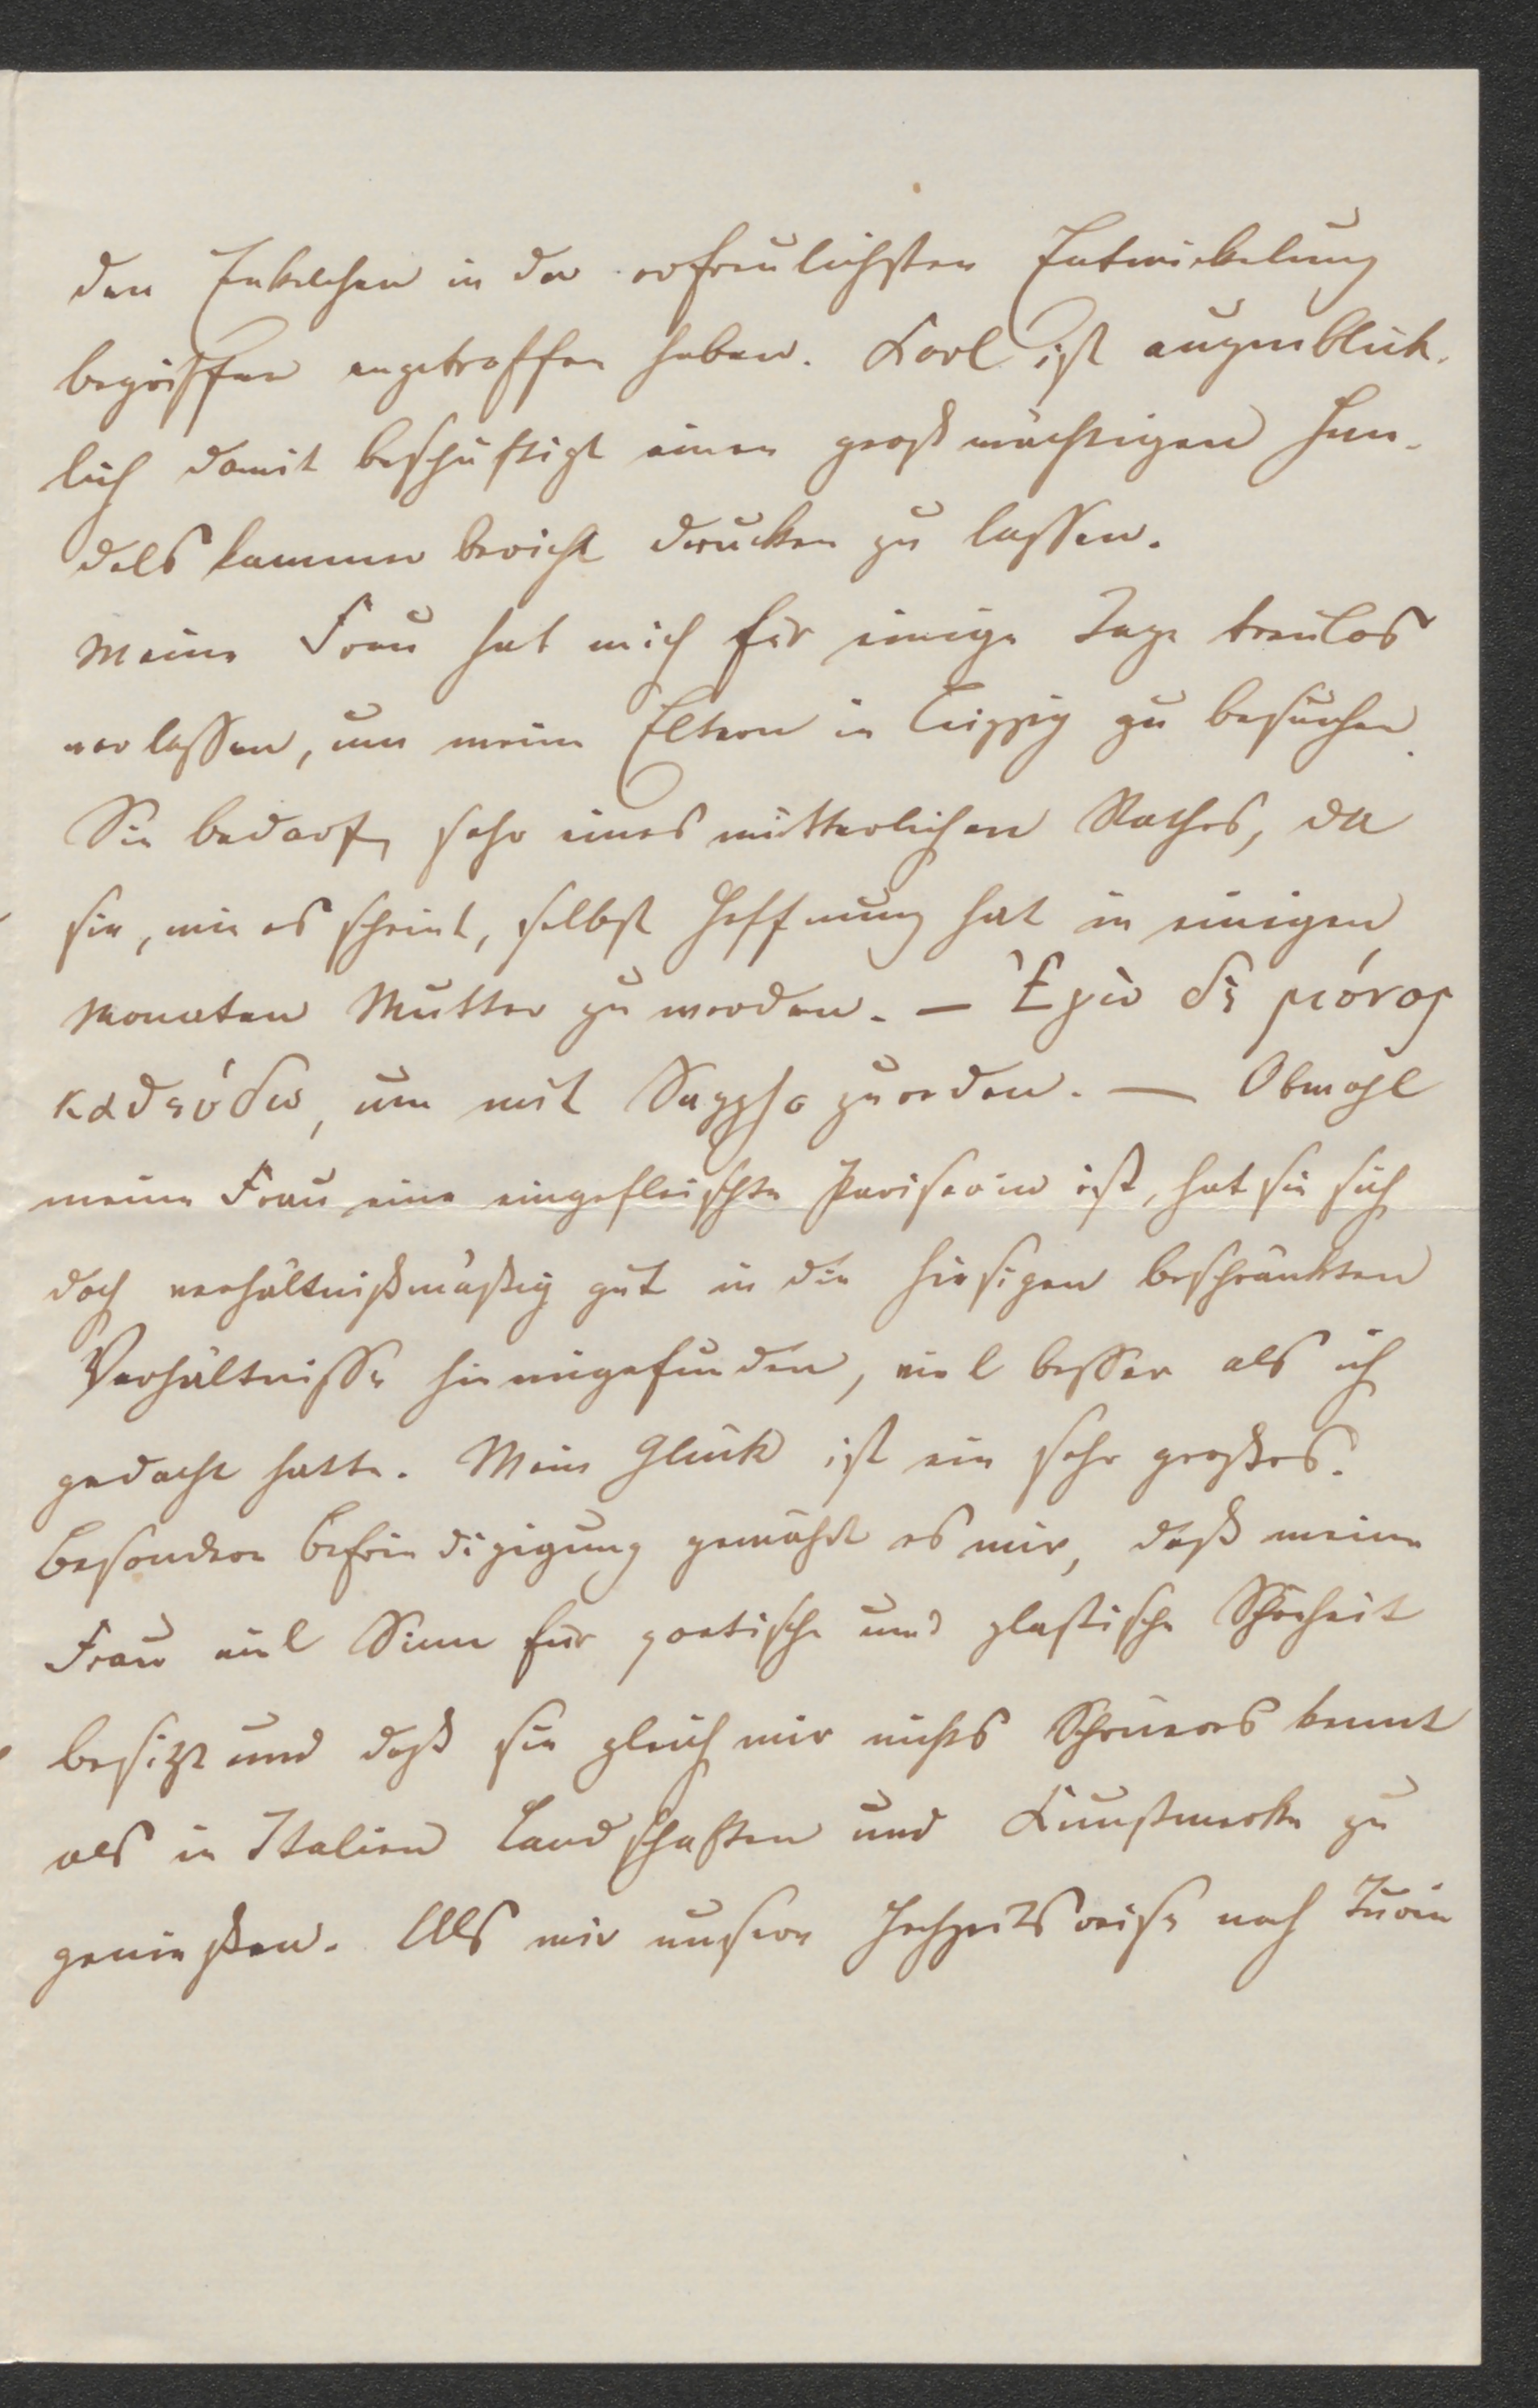 den Enkelchen in der erfreulichsten Entwickelung
begriffen angetroffen haben. Karl ist augenblick-
lich damit beschäftigt einen großmächtigen Han-
delskammerbericht drucken zu lassen.
Meine Frau hat mich für einige Tage treulos
verlassen, um meine Eltern in Leipzig zu besuchen.
Sie bedarf sehr eines mütterlichen Rathes, da
sie, wie es scheint, selbst Hoffnung hat in einigen
Monaten Mutter zu werden. — Ἐγὼ δὲ μόνος
καθεύδω, um mit Sappho zu reden. — Obwohl
meine Frau eine eingefleischte Pariserin ist, hat sie sich
doch verhältnißmäßig gut in die hiesigen beschränkten
Verhältnisse hineingefunden, viel besser als ich
gedacht hatte. Mein Glück ist ein sehr großes.
Besondere Befriedigigung gewährt es mir, daß meine
Frau viel Sinn für poetische und plastische Schönheit
besitzt und daß sie gleich mir nichts Schöneres kennt
als in Italien Landschaften und Kunstwerke zu
genießen. Als wir unsere Hochzeitsreise nach Turin